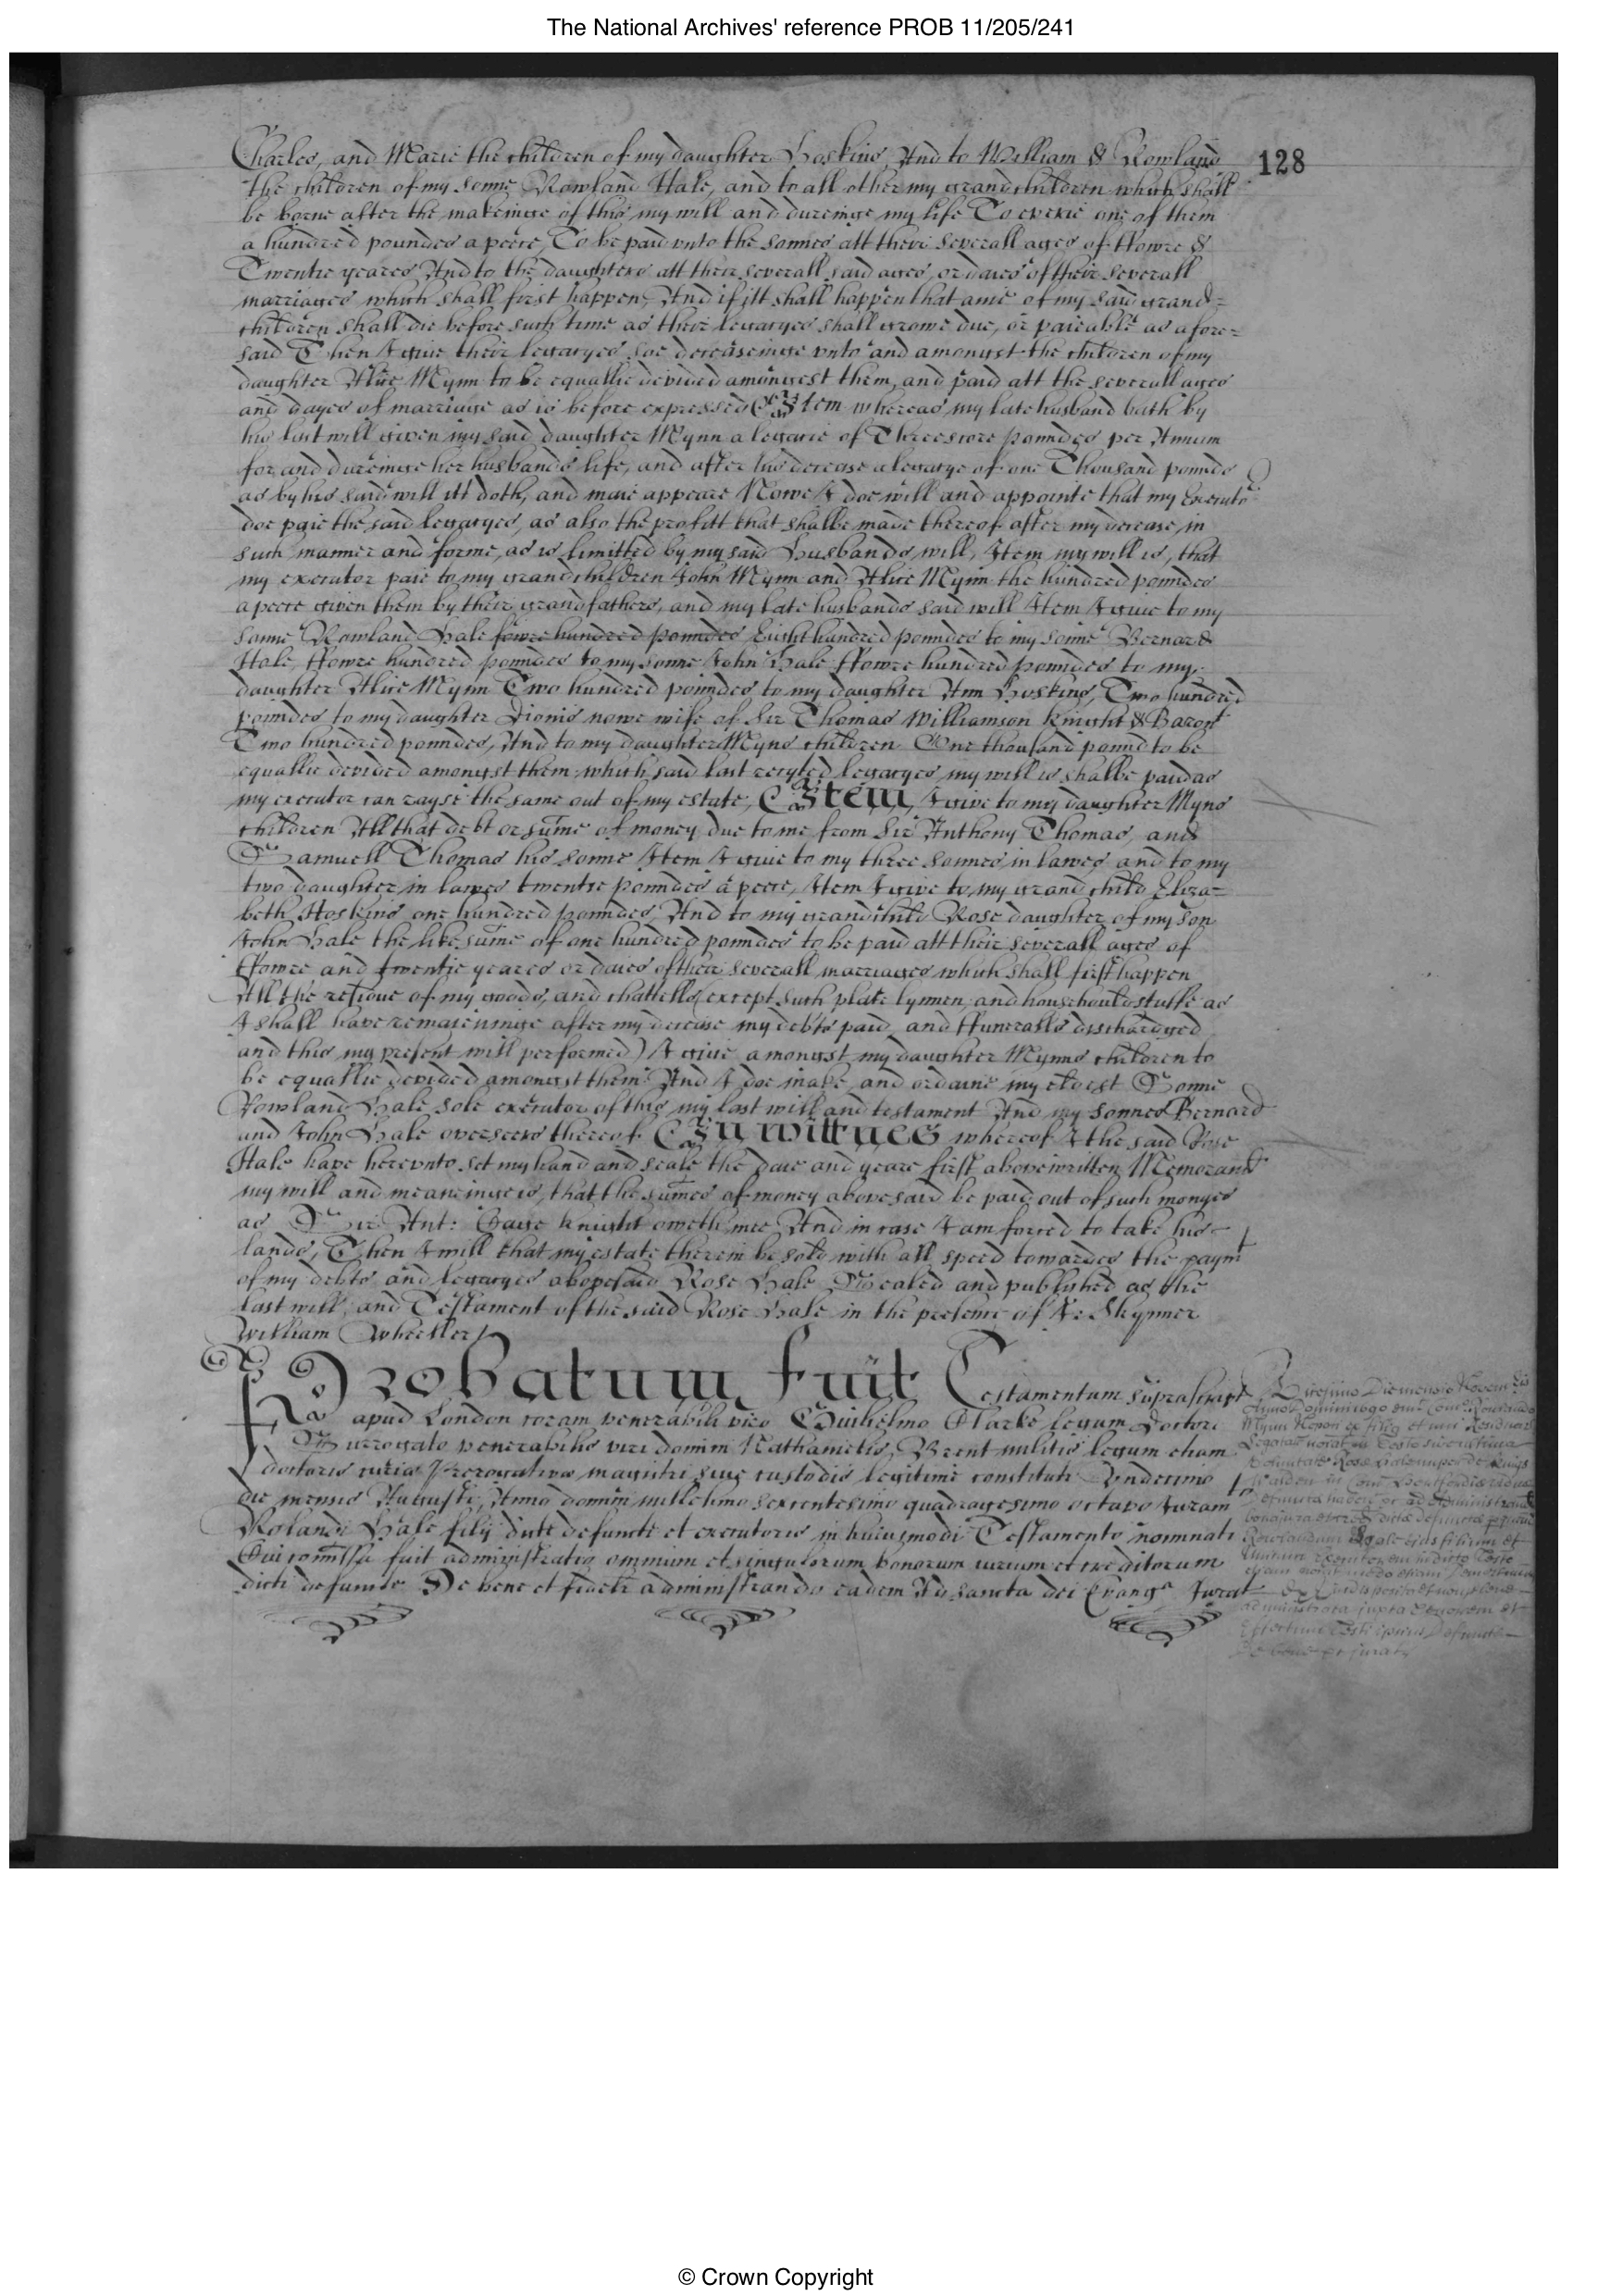 The National Archives' reference PROB 11/205/241
128
Charles, and Marie the children of my daughter Hoskins And to William & Rowland
the children of my sonne Rowland Hale, and to all other my grandchildren which shall
be borne after the makeinge of this my will and dureinge my life To everie one of them
a hundred poundes a peece, To be paid unto the sonnes att their severall ages of ffowre &
Twentie yeares And to the daughters att their severall said ages, or daies of their severall
marriages which shall first happen, And if itt shall happen that anie of my said grand=
children shall die before such time as their legacyes shall growe due, or paieable as afore=
said Then I give their legacyes soe deceaseinge unto and amongst the children of my
daughter Alice Mynn to be equallie devided amongest them, and paid att the severall ages
and dayes of marriage as is before expressed Item whereas my late husband hath by
his last will given my said daughter Mynn a legacie of Threescore poundes per Annum
for and dureinge her husbands life, and after his decease a legacye of one Thousand pounds
as by his said will itt doth, and maie appeare Nowe I doe will and appointe that my Executo
doe paie the said legacyes, as also the profitt that shalbe made thereof after my decease, in
such manner and forme, as is limitted by my said Husbands will, Item my will is, that
my executor paie to my grandchildren John Mynn and Alice Mynn the hundred poundes
a peece given them by their grandfathers, and my late husbands said will Item I give to my
sonne Rowland Hale fowre hundred poundes Eight hundred poundes to my sonne Bernard
Hale, ffowre hundred poundes to my sonne John Hale ffowre hundred poundes to my
daughter Alice Mynn Two hundred poundes to my daughter Ann Hoskins, Two hundred
poundes to my daughter Dionis nowe wife of Sir Thomas Williamson knight & Baront
Two hundred poundes, And to my daughter Myns children One thousand pound to be
equallie devided amongst them, which said last recyted legacyes my will is shalbe paid as
my executor can rayse the same out of my estate, Item, I give to my daughter Myns
children All that debt or sume of money due to me from Sir Anthony Thomas, and
Samuell Thomas his sonne Item I give to my three sonnes in lawes and to my
two daughter in lawes twentie poundes a peece, Item I give to my grand child Eliza=
beth Hoskins one hundred poundes And to my grandchild Rose daughter of my son
John Hale the like sume of one hundred poundes to be paid att their severall ages of
ffowre and twentie yeares or daies of their severall marriages which shall first happen
All the residue of my goods, and chattells (except such plate lynnen, and househould stuffe as
I shall have remaieninge after my decease my debts paid, and ffuneralls dischardged
and this my present will performed) I give amongst my daughter Mynns children to
be equallie devided amongst them And I doe make, and ordaine my eldest Sonne
Rowland Hale sole executor of this my last will and testament And my sonnes Bernard
and John Hale overseers thereof In wittnes whereof I the said Rose
Hale have hereunto set my hand and seale the daie and yeare first above written Memorand
my will and meaneinge is, that the sumes of money abovesaid be paid out of such monyes
as Sir Ant: Gage knight oweth mee And in case I am forced to take his
lands, Then I will that my estate therein be sold with all speed towardes the paymt
of my debts and legacyes abovesaid Rose Hale Sealed and published as the
last will, and Testament of the said Rose Hale in the presence of Skynner
William Wheeller
Probatum fuit Testamentum suprascript
apud London coram venerabili viro Guilielmo Clarke legum doctore
Surrogato venerabilis viri domini Nathanielis Brent militis legum etiam
doctoris curie Prerogative magistri sive custodis legitime constituti Undecimo
die mensis Augusti, Anno domini millesimo sexcentesimo quadragesimo octavo Juram to
Rolandi Hale filij dicte defuncte et executoris in huiusmodi Testamento nominati
Cui comissa fuit administratio omnium et singulorum bonorum iurium et creditorum
dicte defuncte De bene et fideli administrando eadem Ad sancta dei Evangª Jurat
© Crown Copyright